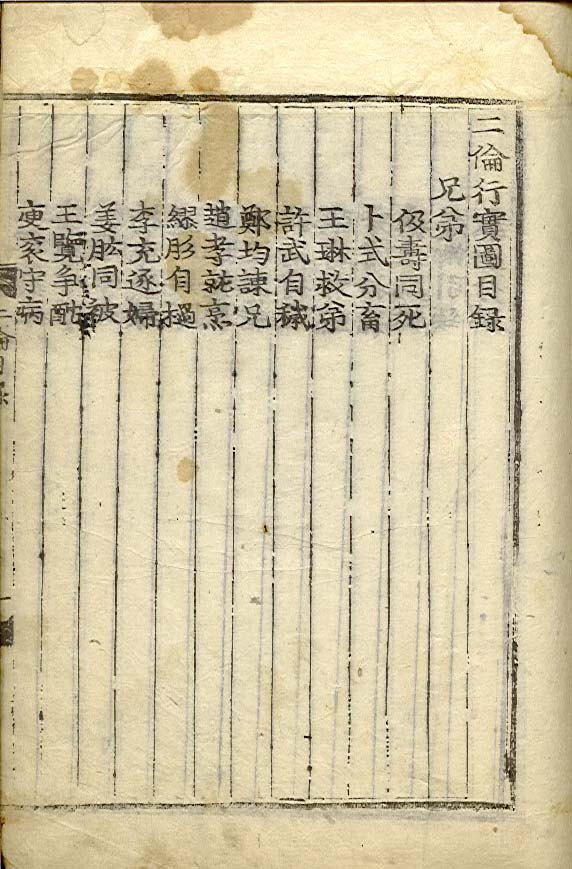 二倫行實圖目録
兄弟
伋壽同死
卜式分畜
王琳救弟
許武自穢
鄭均諫兄
趙孝就烹
繆肜自撾
李充逐婦
姜肱同被
王覽争酖
庾衮守病
二倫目录